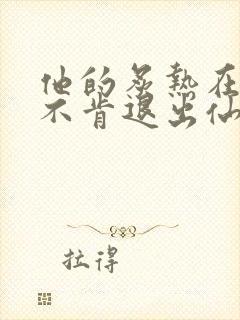 他的炙热在
不肯退出仙
拉得